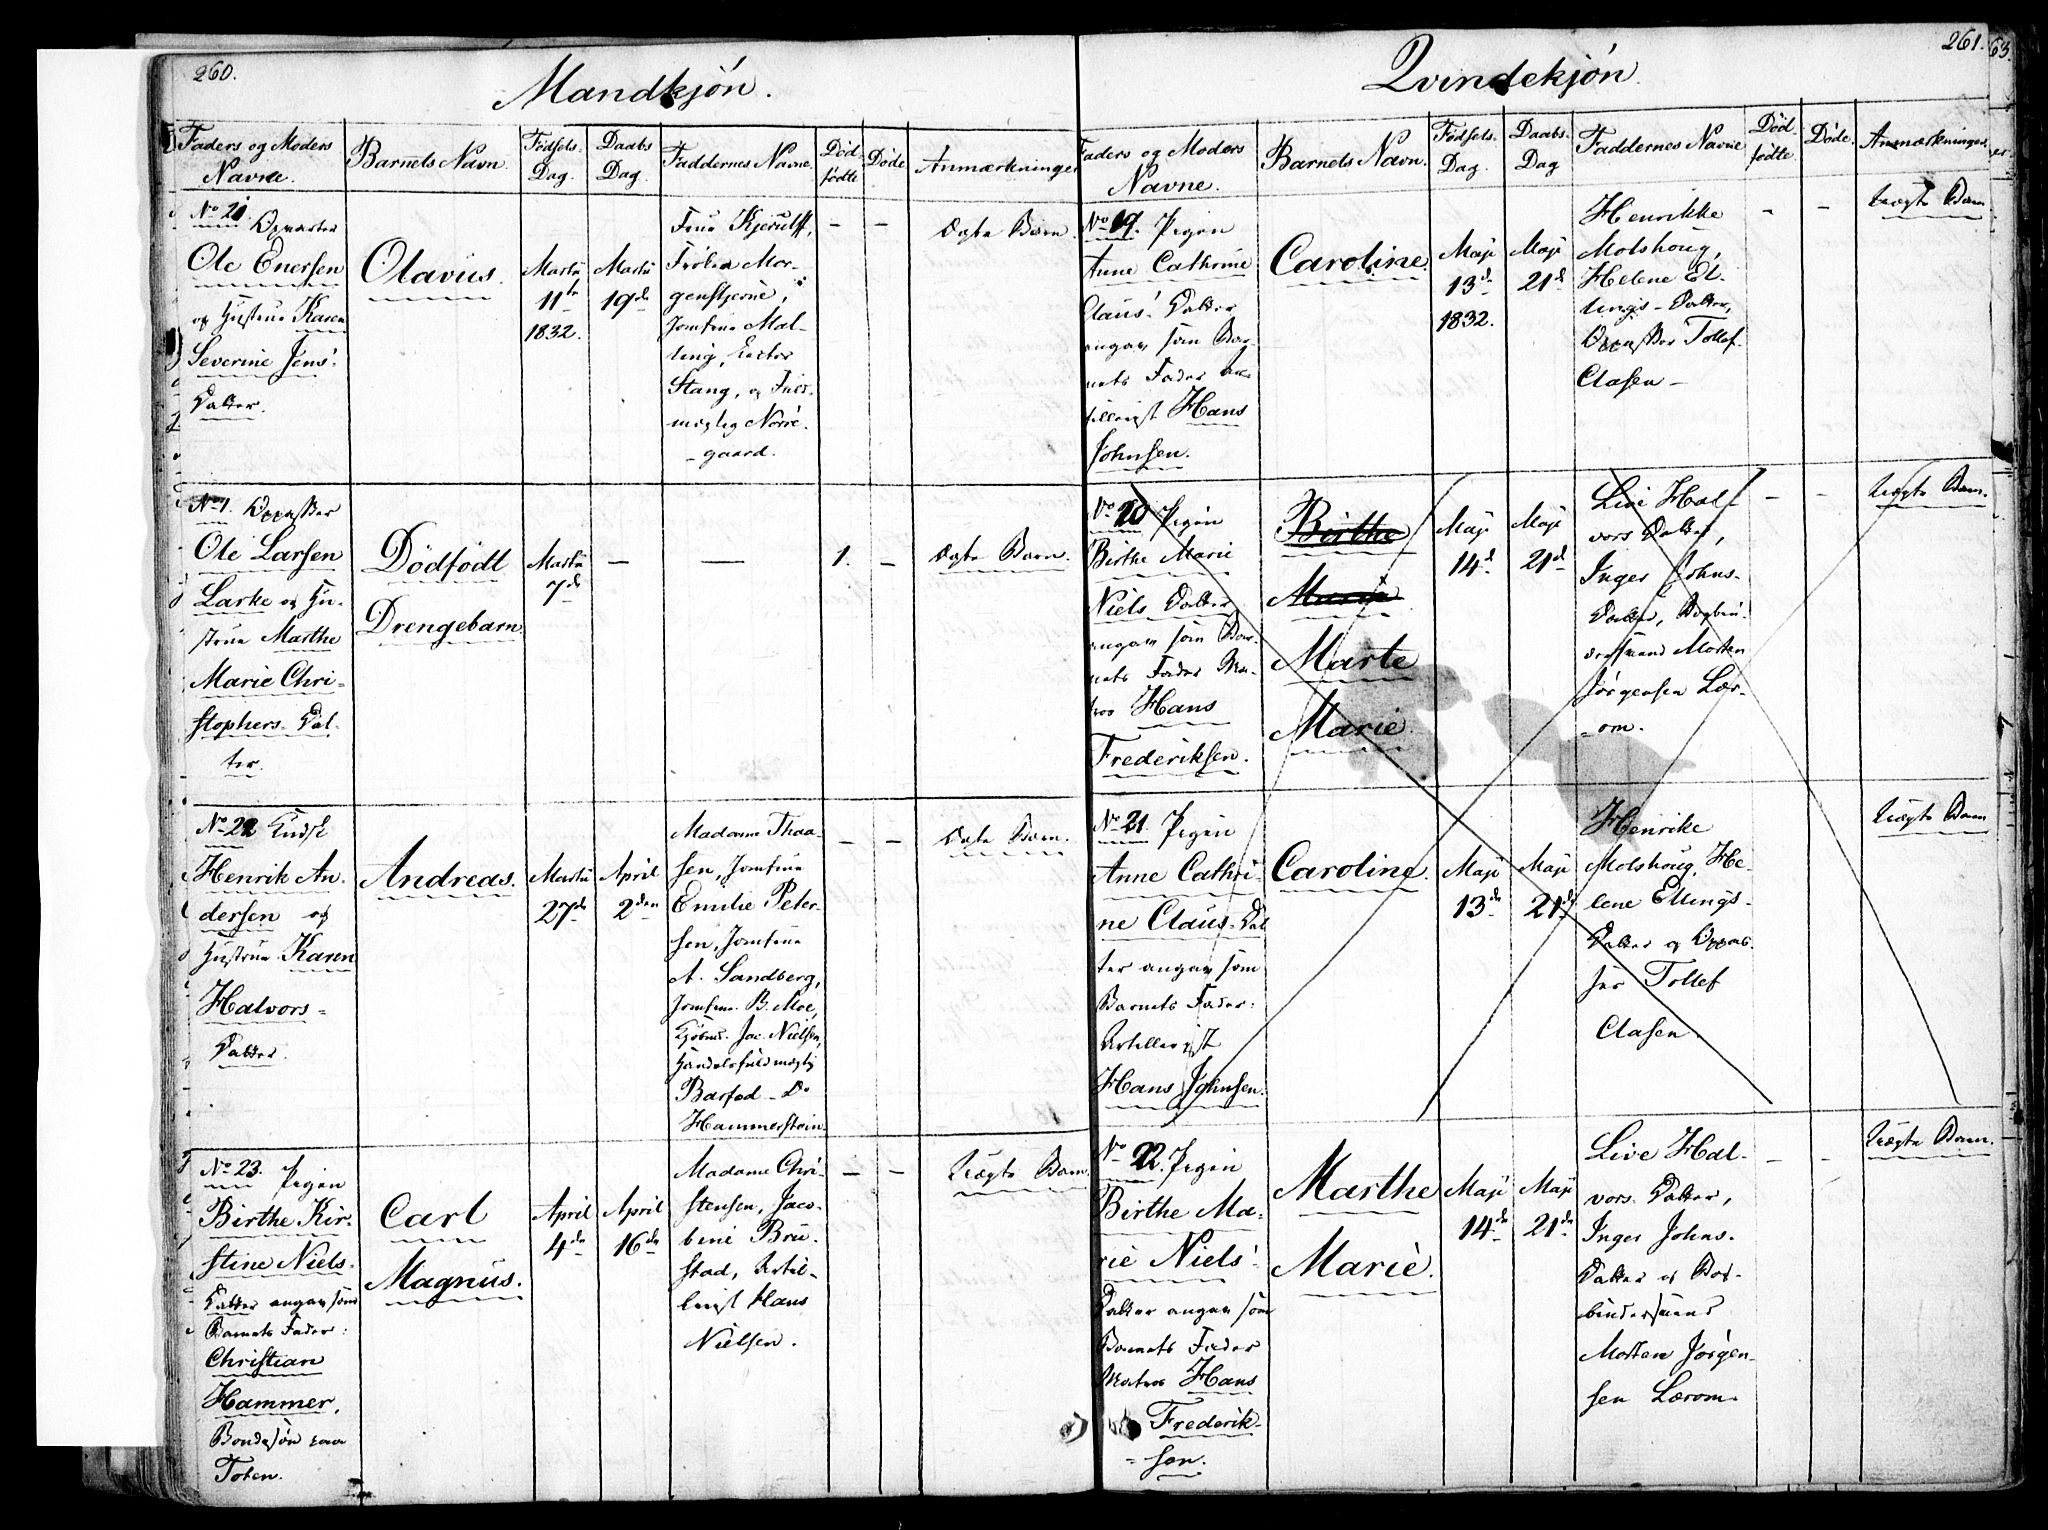 260.
Mandkjön.
Faders og Moders
Navne.
Barnets Navn.
Fødsels-
Dag.
Daabs
Dag.
Faddernes Navne.
Död-
födte
Döde
Anmærkninger
No 21.
Ole Enersen
og Hustrue Karen
Severine Jens'
Datter.
Olavus.
Martii
11te
1832.
Martii
19de
Frue Kjerulff,
Frøken Mor-
genstjerne,
Jomfrue Mal-
ling,
Stang, og Fuld-
mægtig Nörre-
gaard.
-
-
Ægte Barn.
No 1. Oppasser
Ole Larsen
Larke og Hu-
strue Marthe
Marie Chri-
stophers Dat-
ter.
Dödfödt
Drengebarn.
Martii
7de
-
-
1.
-
Ægte Barn.
No 22 Kudsk
Henrik An-
dersen og
Hustrue Karen
Halvors-
Datter.
Andreas.
Martii
27de
April
2den
Madame Thaa-
sen, Jomfrue
Emilie Peter-
sen, Jomfrue
A. Sandberg,
Jomfrue B. Moe,
Kjöbmd. Jac. Nielsen,
Handelsfuldmægtig
Barfod - Do
Hammerstein.
-
-
Ægte Barn.
No 23. Pigen
Birthe Kir-
stine Niels-
Datter angav som
Barnets Fader:
Christian
Hammer,
Bondesön paa
Toten.
Carl
Magnus.
April
4de
April
16de
Madame Chri-
stensen, Jaco-
bine Bru-
stad, Artil-
lerist Hans
Nielsen.
-
-
Uægte Barn.
261.
63.
Qvindekjön.
Faders og Moders
Navne.
Barnets Navn.
Födsels-
Dag.
Daabs-
Dag
Faddernes Navne
Död-
födte
Döde.
Anmærkninger.
No 19. Pigen
Anne Cathrine
Claus' Datter
angav som Bar-
nets Fader Ar-
tillerist Hans
Johnsen.
Caroline.
Maji
13de
1832.
Maji
21de
Henrikke
Molshoug,
Helene El-
lings-Datter,
Oppasser Tollef
Clasen -
-
-
Uægte Barn
No 20 Pigen
Birthe Marie
Niels Datter
angav som Bar-
nets Fader Ma-
tros Hans
Frederiksen.
Birthe
Marie
Marte
Marie.
Maji
14de
Maji
21de
Live Hal-
vors Datter,
Inger Johns-
Datter, Bogbin-
dersvend Morten
Jörgensen Lær-
om.
-
-
Uægte Barn.
No 21. Pigen
Anne Cathri-
ne Claus-Dat
ter angav som
Barnets Fader:
Artillerist
Hans Johnsen.
Caroline.
Maji
13de
Maji
21de
Henrike
Molshoug, He-
lene Ellings-
Datter og Oppas-
ser Tollef
Clasen.
Uægte Barn
No 22. Pigen
Birthe Ma-
rie Niels'-
Datter angav som
Barnets Fader
Matros Hans
Frederik-
sen.
Marthe
Marie.
Maji
14de
Maji
21de
Live Hal-
vors-Datter,
Inger Johns-
Datter og Bog-
bindersvend
Morten Jörgen-
sen Lærom.
-
-
Uægte Barn.